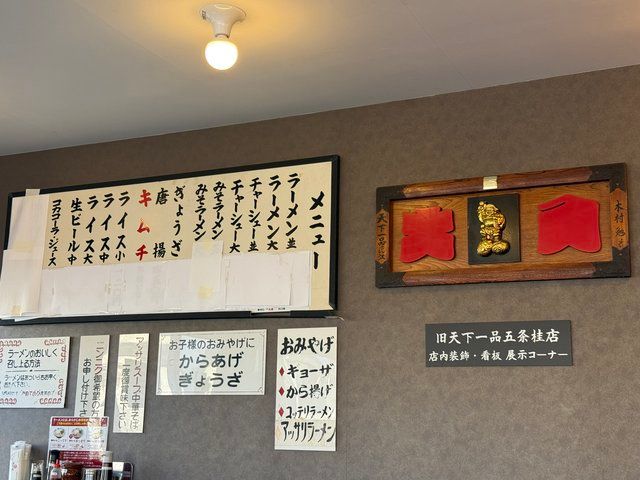 メニュー
ラーメン並
ラーメン大
チャーシュー並
チャーシュー大
みそラーメン
みそラーメン大
ぎょうざ
唐揚
キムチ
ライス小
ライス中
ライス大
生ビール中
コカコーラ・ジュース
天下一品
大入
旧天下一品五条桂店
店内装飾・看板 展示コーナー
ラーメンのおいしく
召し上る方法
ニンニク御希望の方
お申し付け下さい
アッサリスープ中華そば
一度御賞味下さい
お子様のおみやげに
からあげ
ぎょうざ
おみやげ
キョーザ
から揚げ
コッテリラーメン
アッサリラーメン